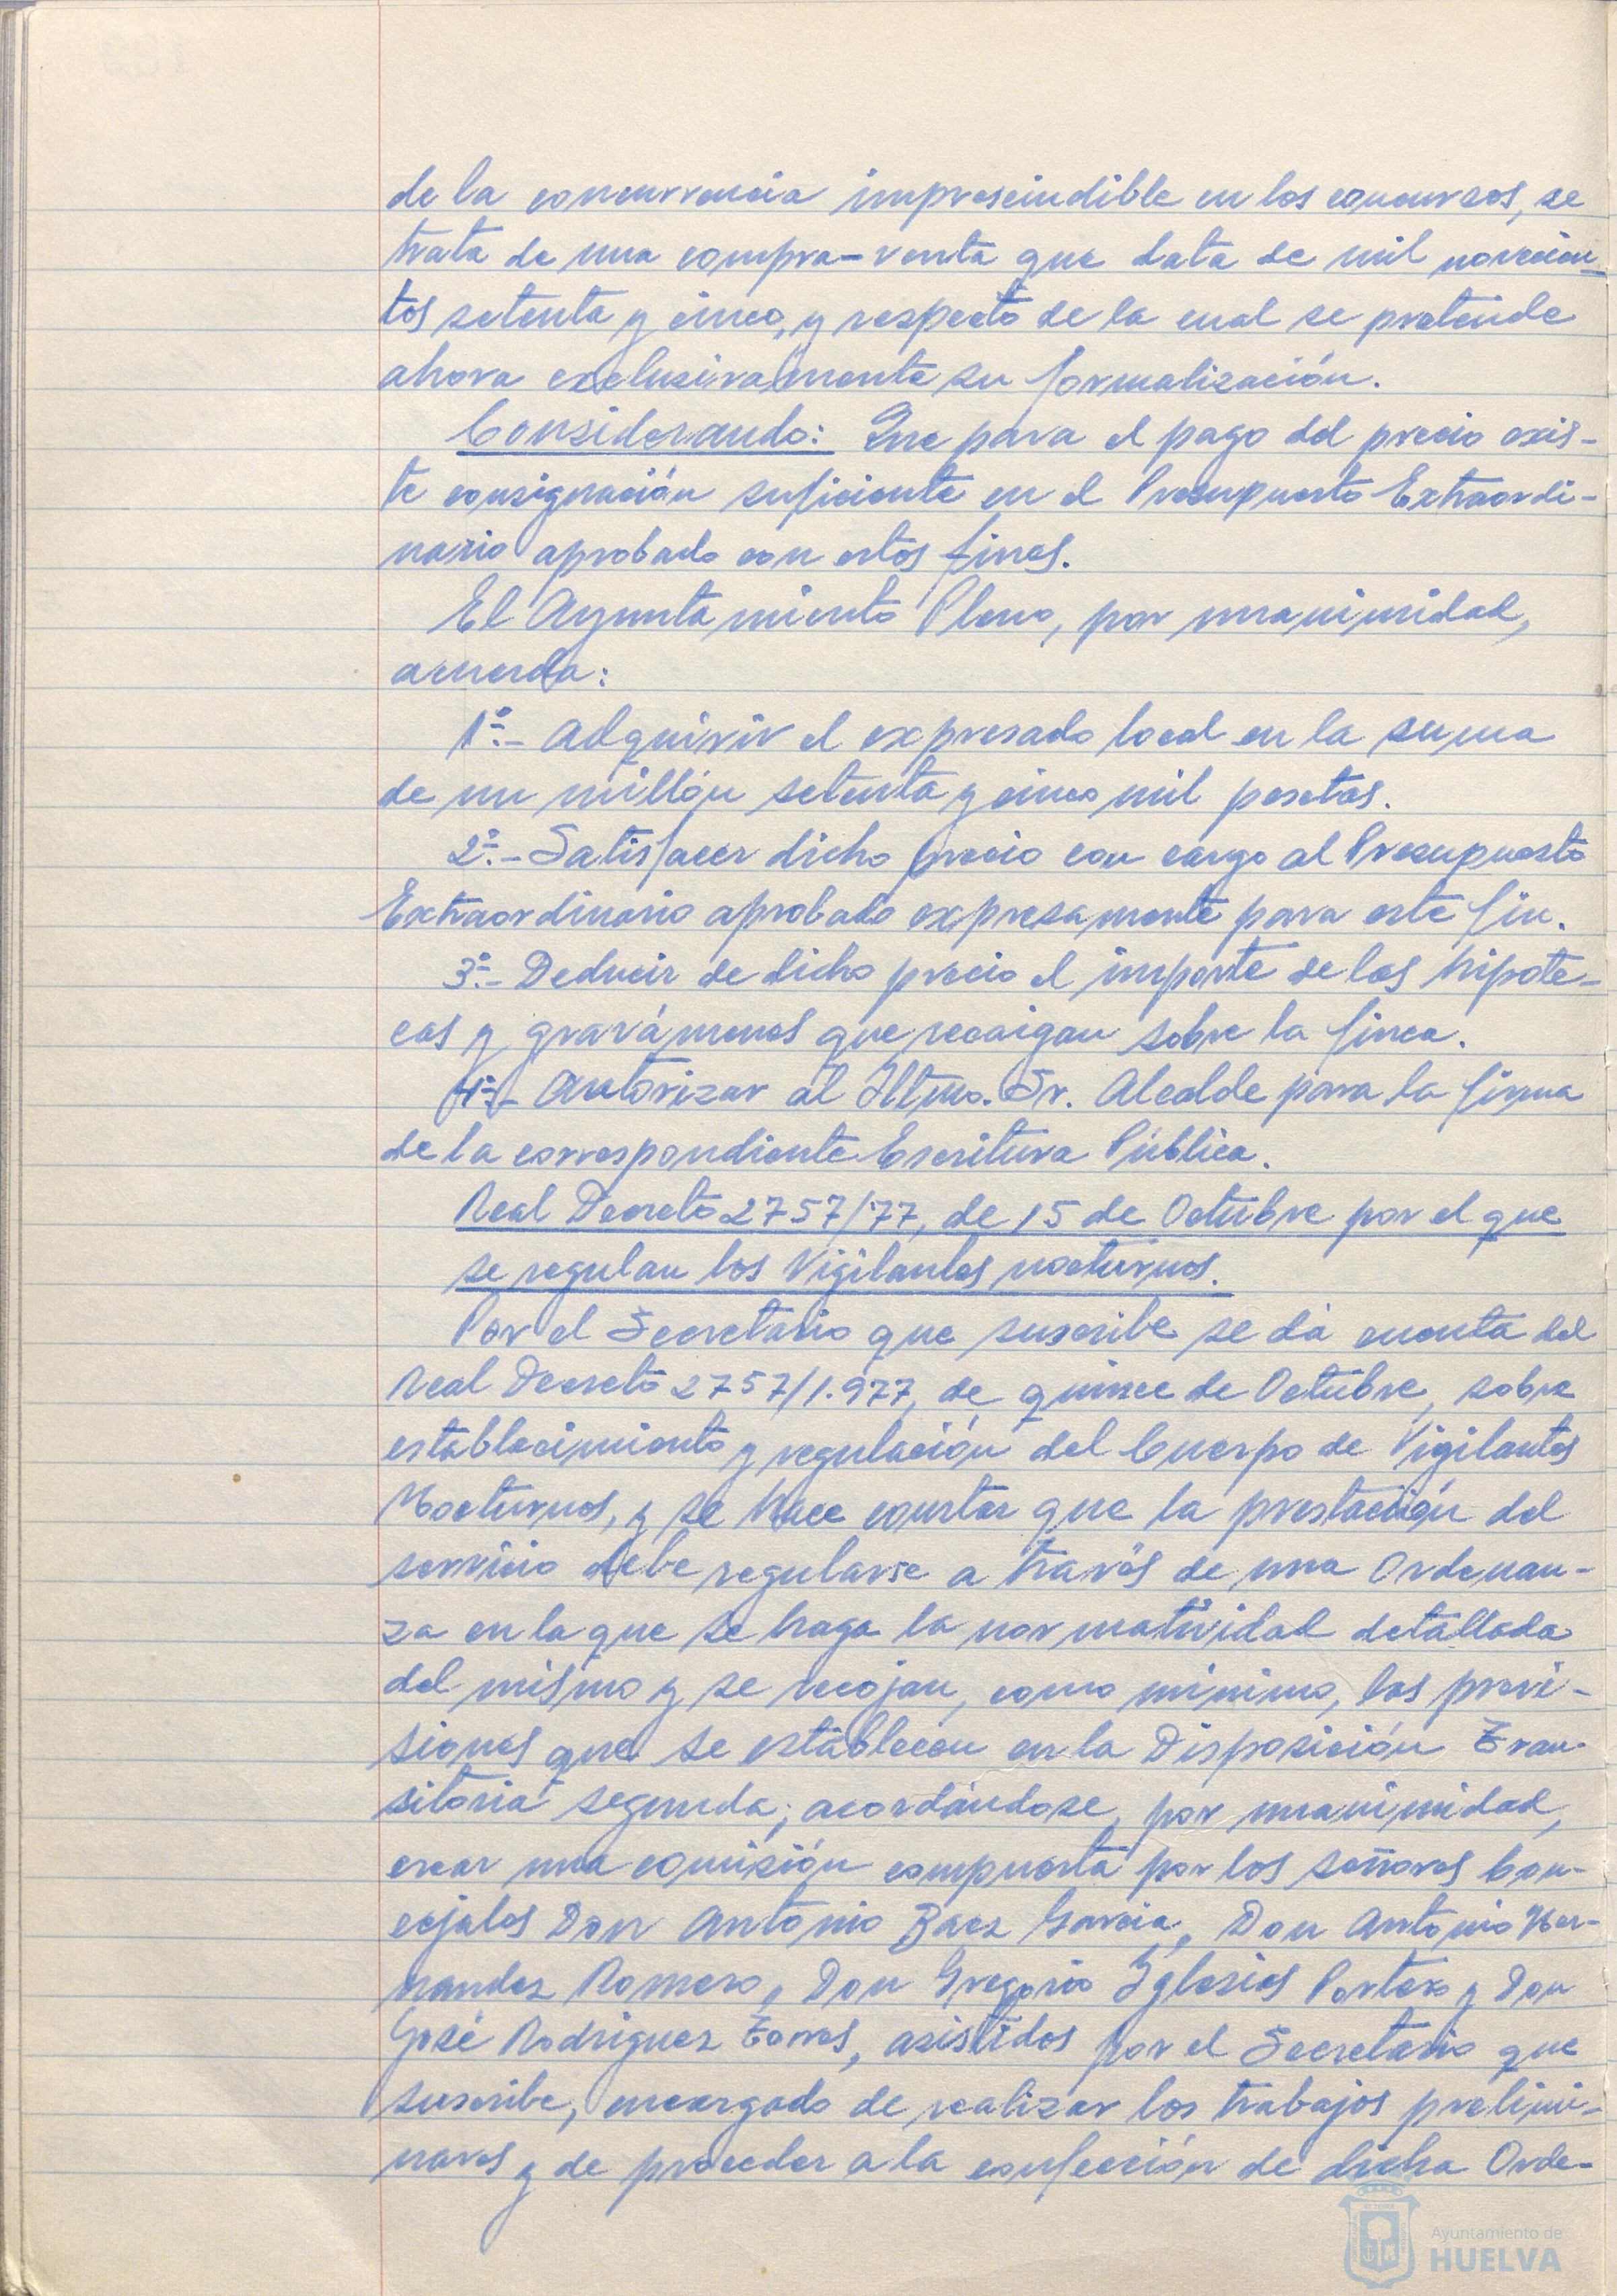 de la concurrencia imprescindible en los concursos, se
trata de una compra-venta que data de mil novecien-
tos setenta y cinco, y respecto de la cual se pretende
ahora exclusivamente su formalización.
Considerando: Que para el pago del precio exis-
te consignación suficiente en el Presupuesto Extraordi-
nario aprobado con estos fines.
El Ayuntamiento Pleno, por unanimidad,
acuerda:
1º.- Adquirir el expresado local en la suma
de un millón setenta y cinco mil pesetas.
2º.- Satisfacer dicho precio con cargo al Presupuesto
Extraordinario aprobado expresamente para este fin.
3º.- Deducir de dicho precio el importe de las hipote-
cas y gravámenes que recaigan sobre la finca.
4º.- Autorizar al Iltmo. Sr. Alcalde para la firma
de la correspondiente Escritura Pública.
Real Decreto 2757/77, de 15 de Octubre por el que
se regulan los Vigilantes nocturnos.
Por el Secretario que suscribe se dá cuenta del
Real Decreto 2757/1.977, de quince de Octubre, sobre
establecimiento y regulación del Cuerpo de Vigilantes
Nocturnos, y se hace constar que la prestación del
servicio debe regularse a través de una Ordenan-
za en la que se haga la normatividad detallada
del mismo y se recojan, como mínimo, las previ-
siones que se establecen en la Disposición Tran-
sitoria segunda; acordándose, por unanimidad,
crear una comisión compuesta por los señores Con-
cejales Don Antonio Baez García, Don Antonio Her-
nandez Romero, Don Gregorio Iglesias Portero y Don
José Rodriguez Torres, asistidos por el Secretario que
suscribe, encargado de realizar los trabajos prelimi-
nares y de proceder a la confección de dicha Orde-
Ayuntamiento de
HUELVA